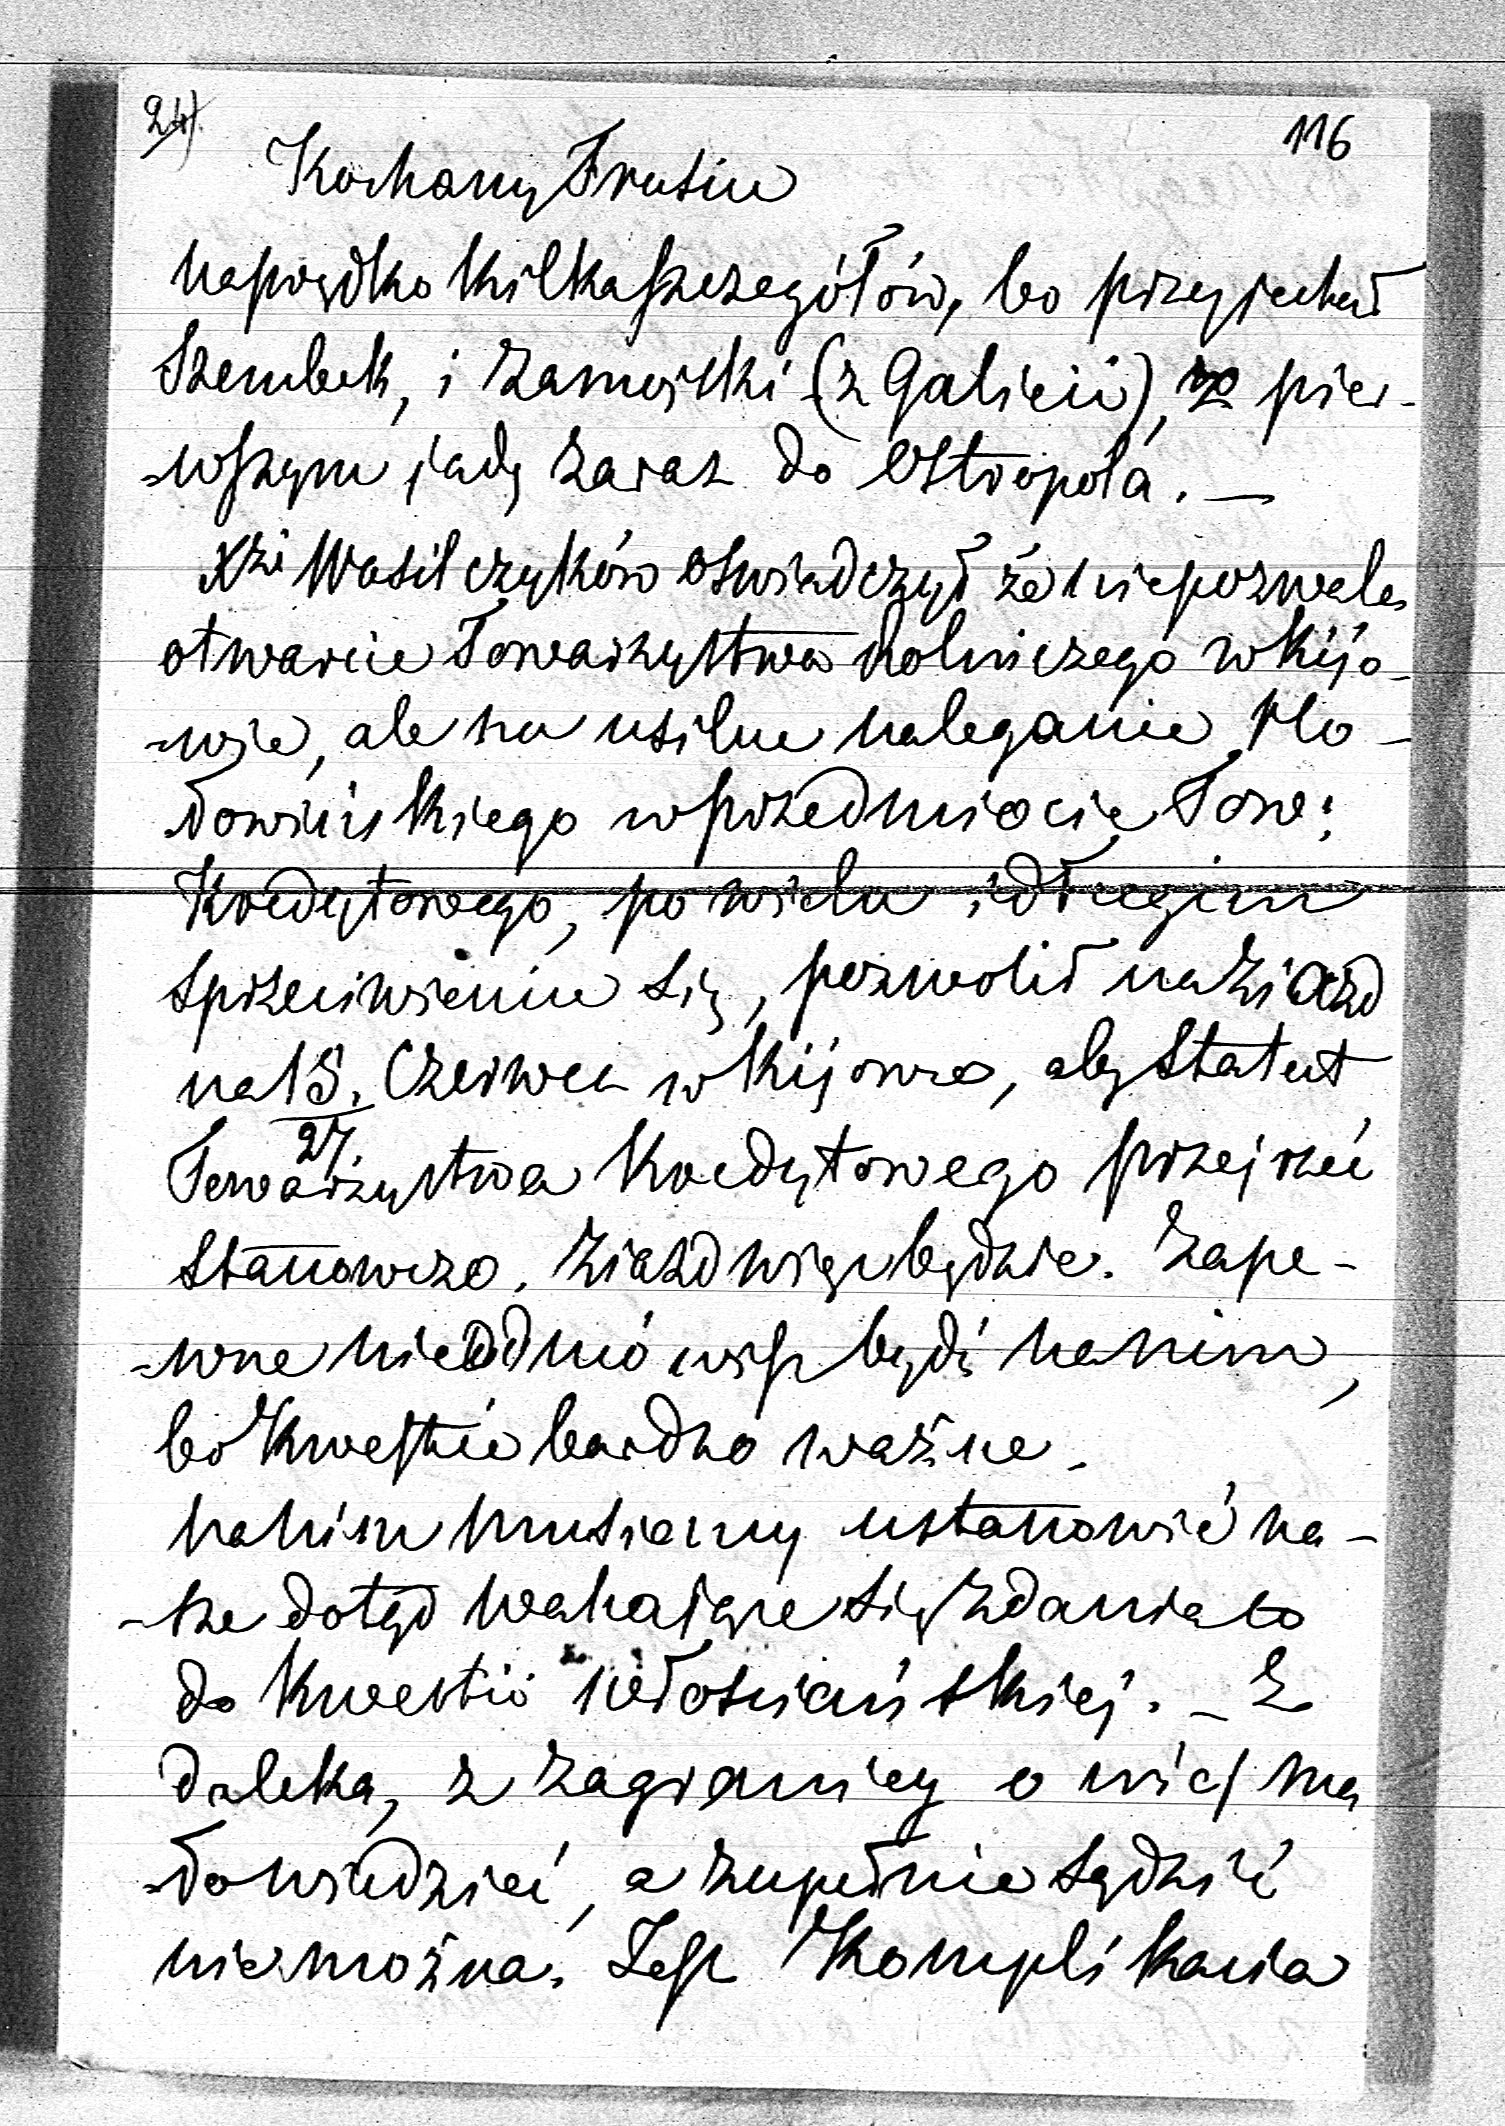 24)
116
Kochany Frusiu
naprędko kilka szczegółów, bo przyjechał
Szembek, i Zamojski (z Galicii), z pier-
-wszym jadę zaraz do Ostropola. —
Xże Wasilczyków oświadczył że niepozwala
otwarcie Towarzystwa Rolniczego w Kijo-
-wie, ale na usilne naleganie Ho-
-łowińskiego w przedmiocie Tow:
Kredytowego, po wielu i długim
sprzeciwieniu się, pozwolił na Ziazd
na 15. Czerwca w Kijowie, aby Statut
27.
Towarzystwa Kredytowego przejrzeć
stanowczo. Ziazd więc będzie. Zape-
-wne nie będąc być na nim,
bo Kwestie bardzo ważne.
na nim musiemy ustanowić na-
-sze dotąd wahające się zdania co
do Kwestii włościańskiej. — Z
daleka, z zagranicy o wiel na
-dowiedzieć, a zupełnie sądzić
niemożna. Jest Komplikacia